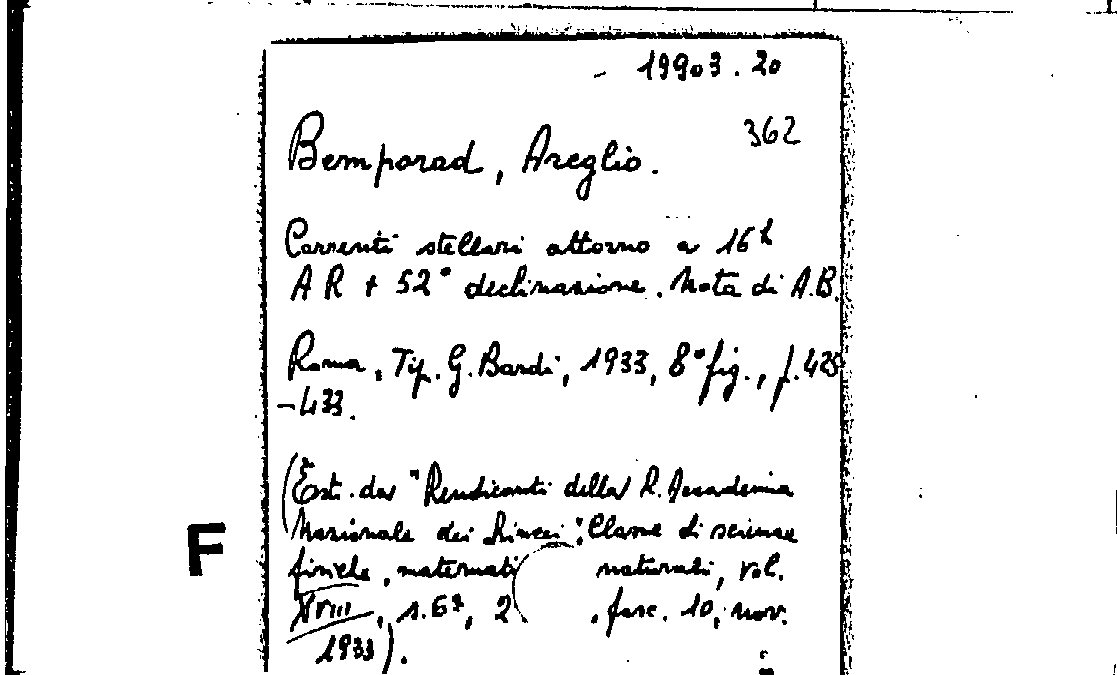 19903.20
362
Bemporad, Areglio.
Correnti stellari attorno a 16h
AR + 52° declinazione. Nota di A.B.
Roma, Tip. G. Bardi, 1933, 8° fig., p. 425
-433.
(Estr. da "Rendiconti della R. Accademia
Nazionale dei Lincei": Classe di scienze
F
fisiche, matemati naturali, vol.
XVIII, s. 6ª, 2 , fasc. 10, nov.
1933).